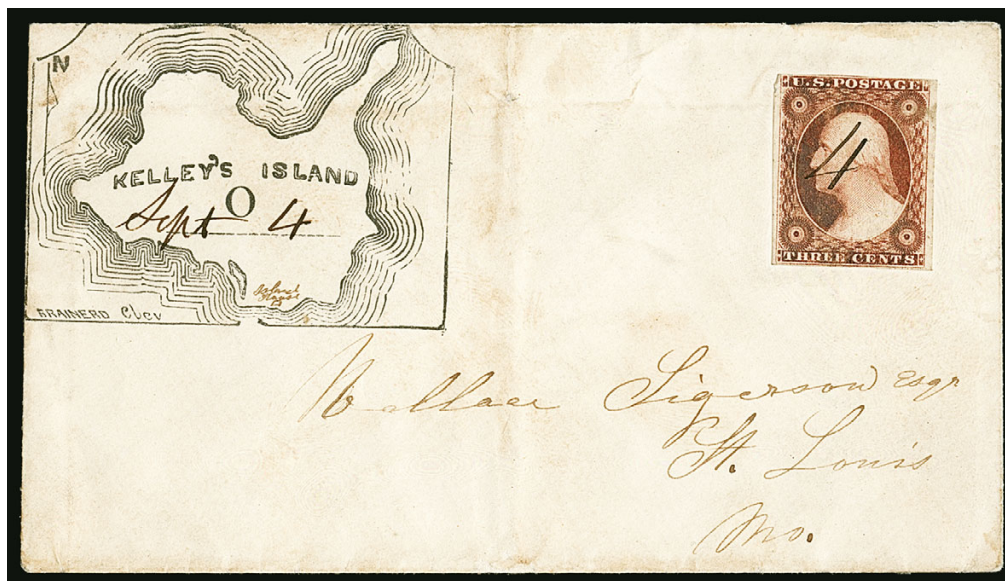 N
KELLEY'S ISLAND
O
Sept 4
Island
House
BRAINERD Clev
U.S. POSTAGE
4
THREE CENTS
Wallace Sigerson Esqr
St. Louis
Mo.